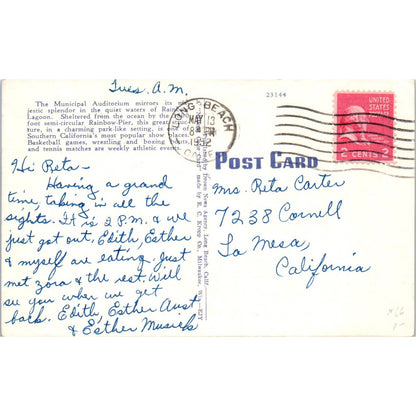 Tues. A.M.
The Municipal Auditorium mirrors its ma-
jestic splendor in the quiet waters of Rain
Lagoon. Sheltered from the ocean by the
foot semi-circular Rainbow Pier, this great
ture, in a charming park-like setting, is one
Southern California's most popular show places.
Basketball games, wrestling and boxing
and tennis matches are weekly athletic even
23144
LONG BEACH
MAY 13
8 AM
1952
CALIF.
UNITED
STATES
POSTAGE
2 CENTS 2
POST CARD
Hi Reta-
Having a grand
time, taking in all the
sights. It is 2 P.M. & we
just got out, Edith, Esther
& myself are eating. Just
met Zora & the rest. Will
see you when we get
back. Edith, Esther Aust
& Esther Musick
Mrs. Reta Carter
7238 Cornell
La Mesa,
California
by Brown News Agency, Long Beach, Calif.
made by E. C. Kropp Co., Milwaukee, Wis.